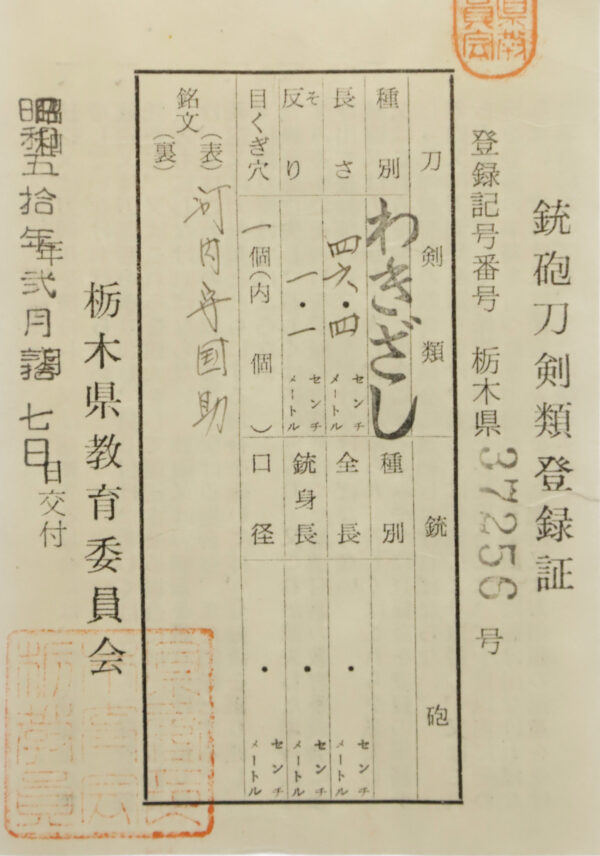 県教
員会
銃砲刀剣類登録証
登録記号番号 栃木県 37256 号
刀剣類
種別 わきざし
長さ 四六・四 センチメートル
反り そ 一・一 センチメートル
目くぎ穴 一個(内 個)
銘文 (表) 河内守国助
(裏)
銃砲
種別
全長 ・ センチメートル
銃身長 ・ センチメートル
口径 ・ センチメートル
栃木県教育委員会
昭和五拾年弐月 七日 日交付